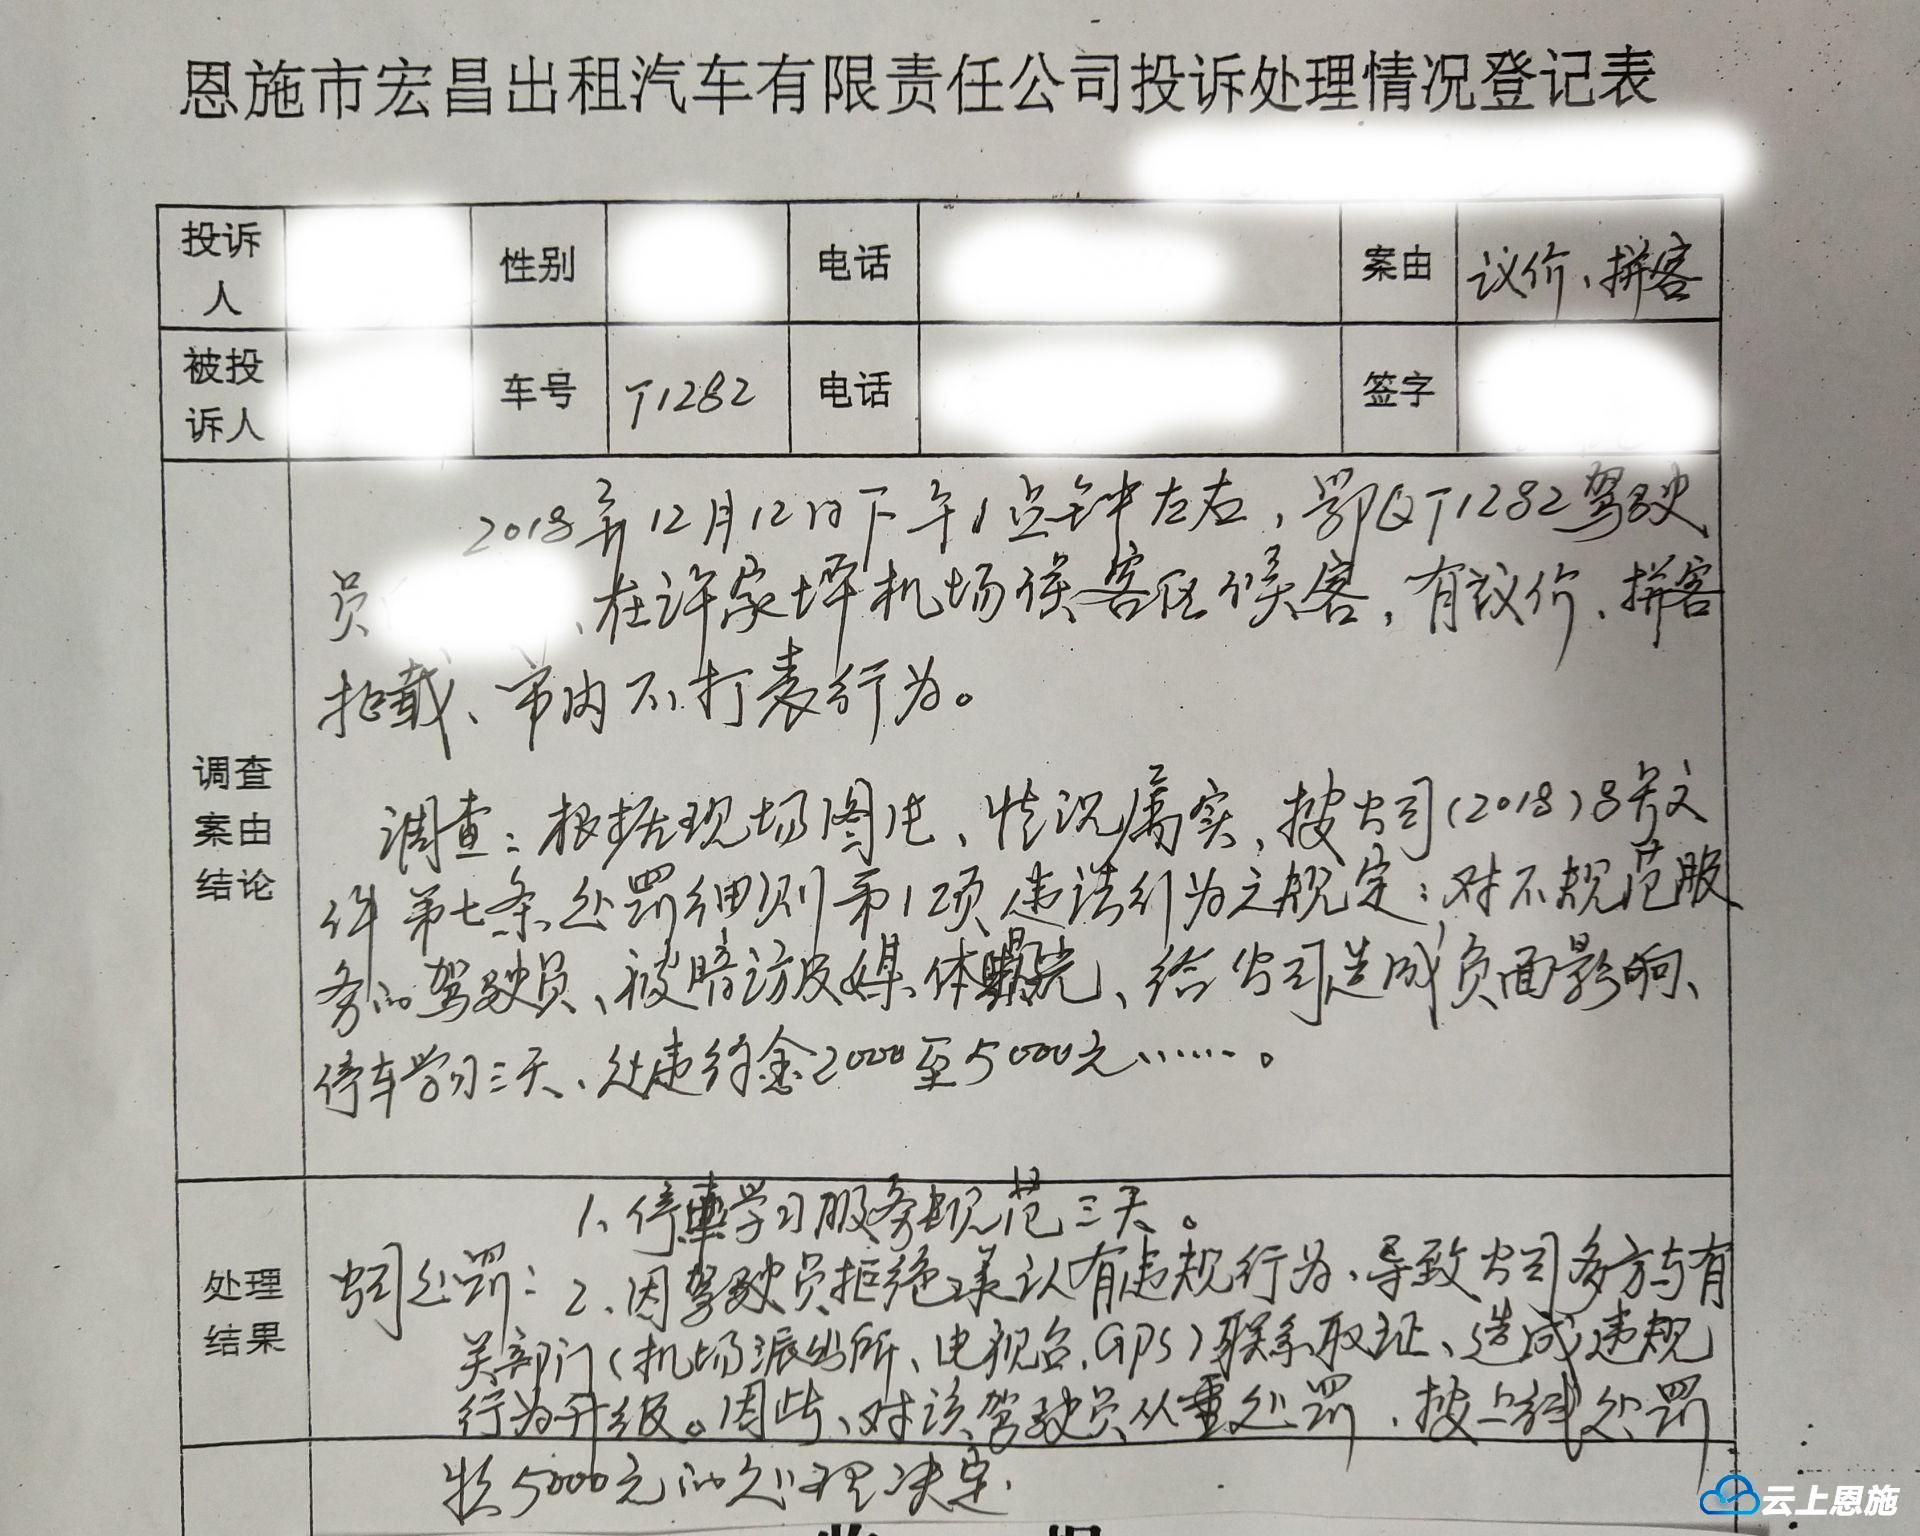 恩施市宏昌出租汽车有限责任公司投诉处理情况登记表
投诉人 性别 电话 案由 议价、拼客
被投诉人 车号 T1282 电话 签字
2018年12月12日下午1点钟左右，鄂QT1282驾驶
员 、在许家坪机场候客区候客，有议价、拼客
拒载、市内不打表行为。
调查案由结论
调查：根据现场图片、情况属实，按公司(2018)8号文
件第七条处罚细则第1项违法行为之规定：对不规范服
务的驾驶员、被暗访及媒体曝光、给公司造成负面影响、
停车学习三天、处违约金2000至5000元……。
处理结果
公司处罚：
1、停车学习服务规范三天。
2、因驾驶员拒绝承认有违规行为、导致公司多方与有
关部门（机场派出所、电视台、GPS）联系取证、造成违规
行为升级。因此、对该驾驶员从重处罚，按上线处罚
5000元的处理决定.
云上恩施